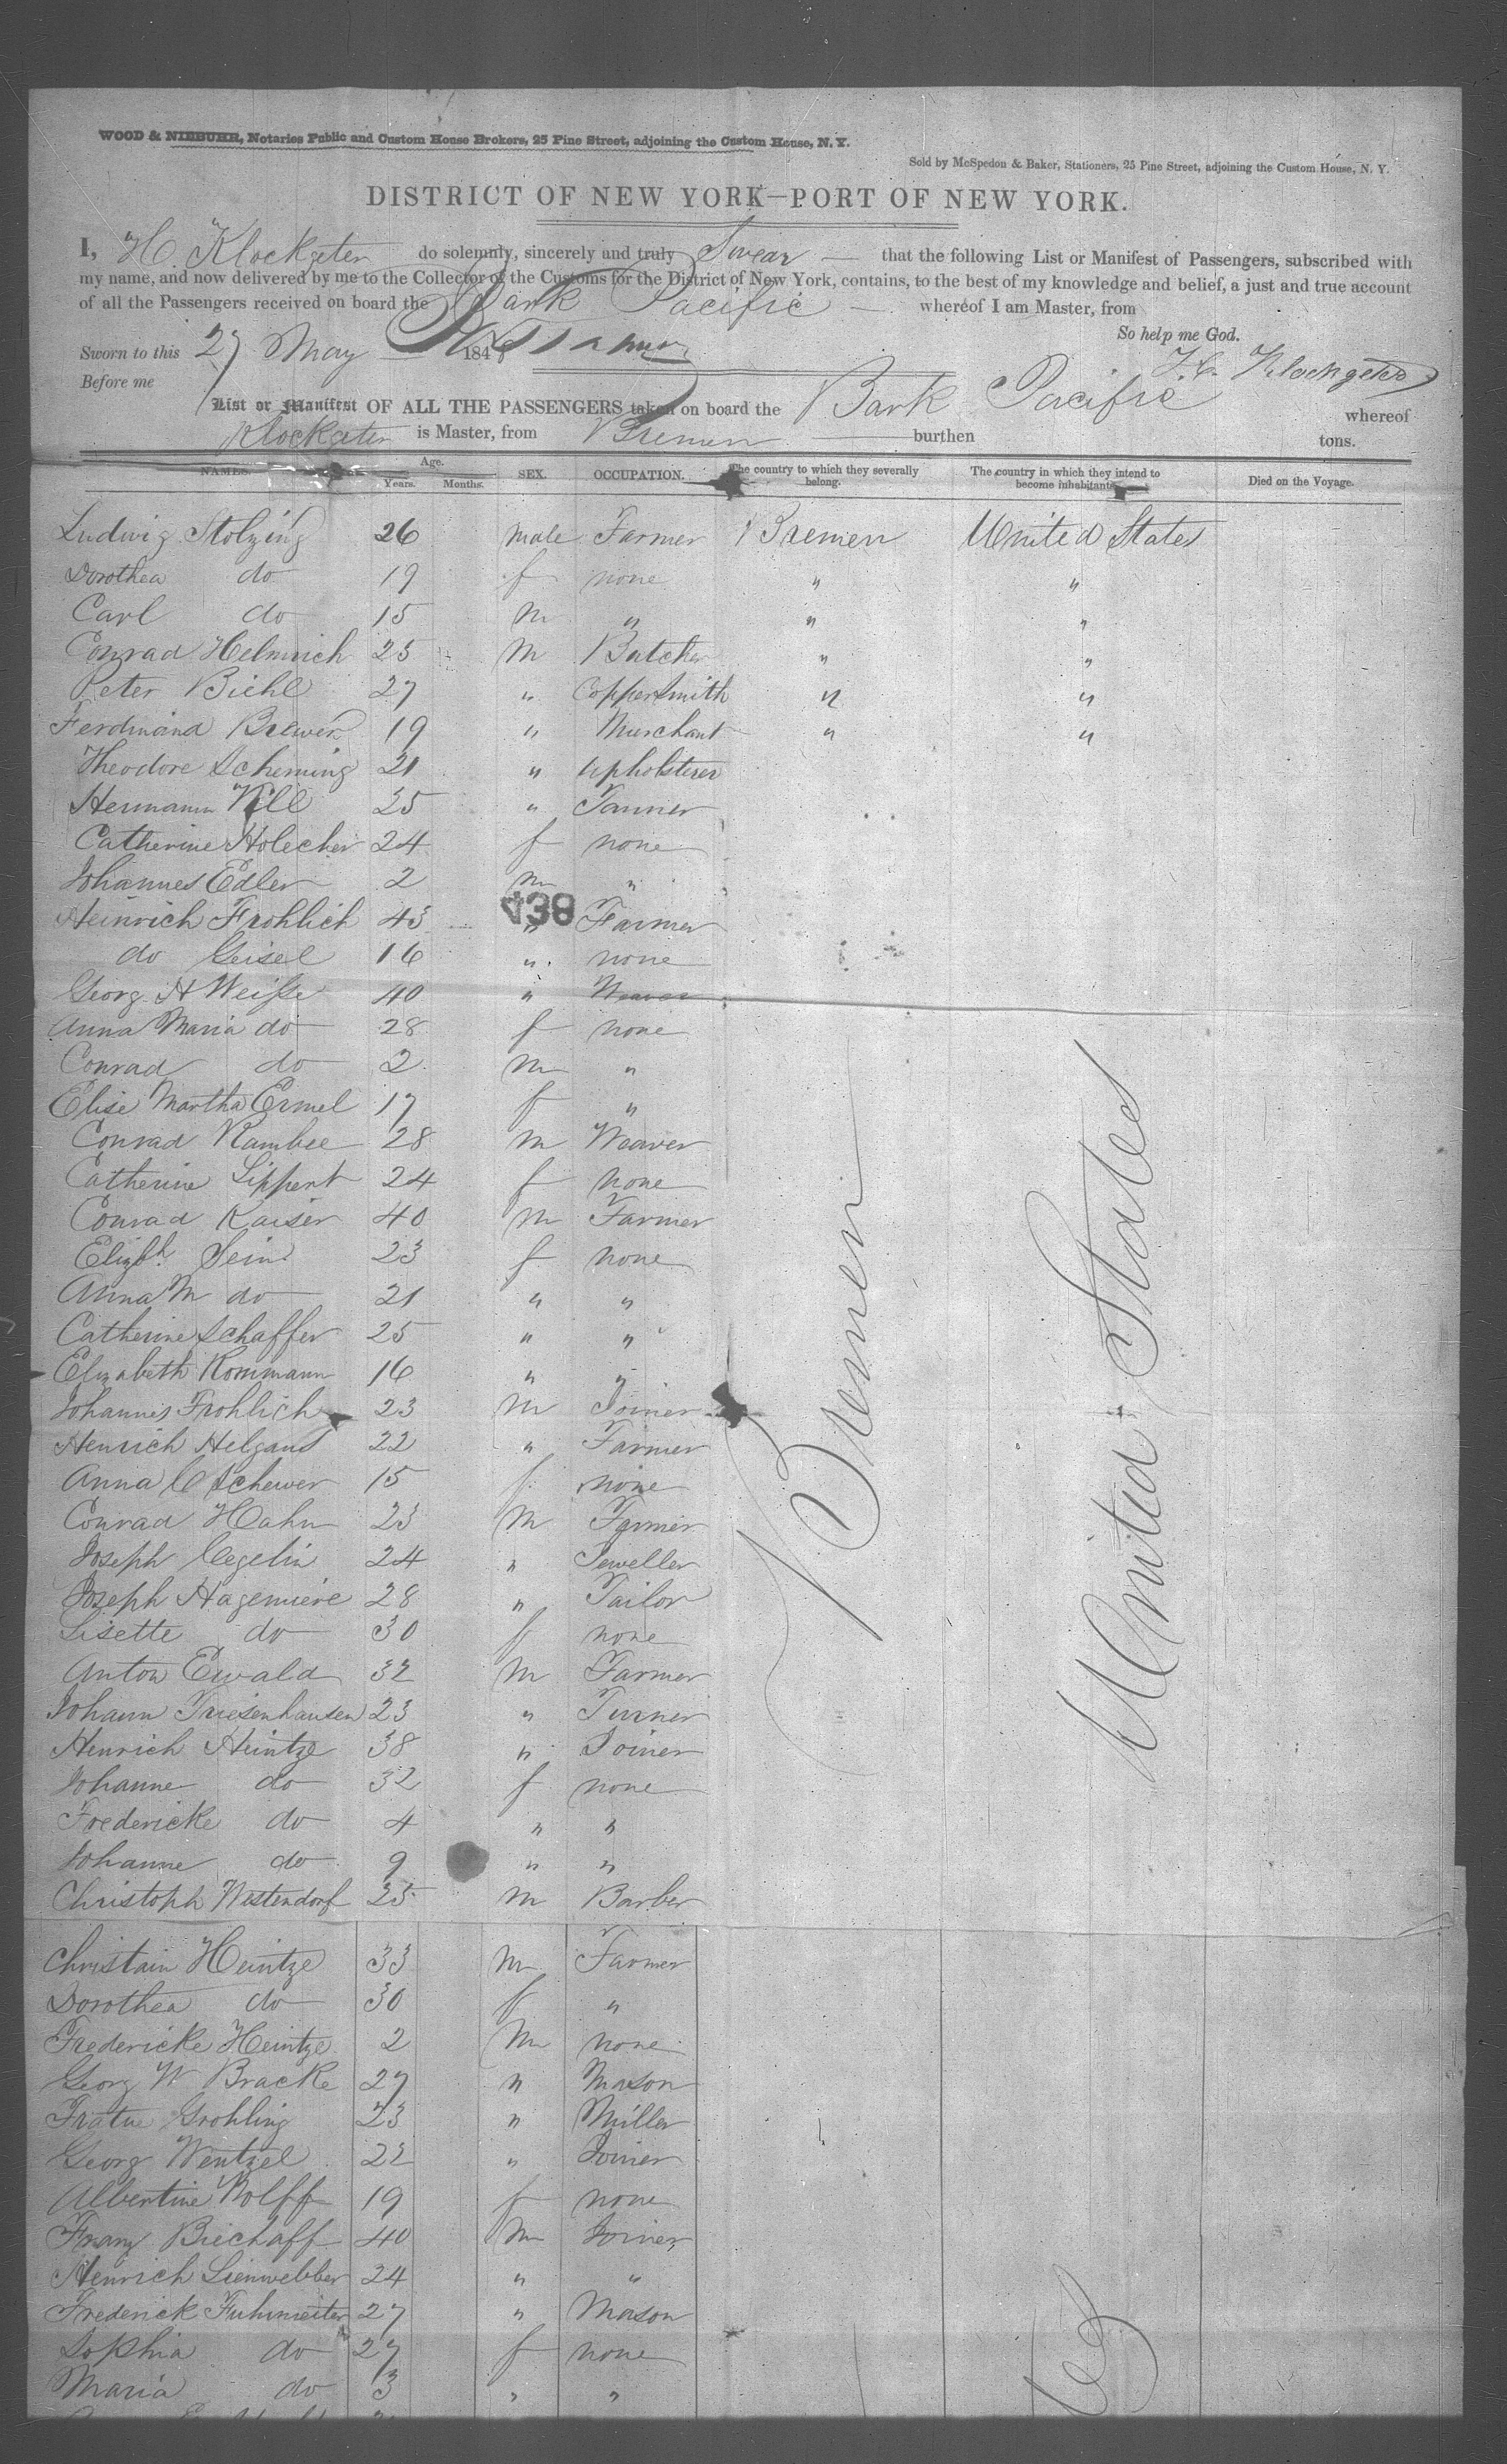 WOOD & NIEBUHR, Notaries Public and Custom House Brokers, 25 Pine Street, adjoining the Custom House, N. Y.
Sold by McSpedon & Baker, Stationers, 25 Pine Street, adjoining the Custom House, N. Y.
DISTRICT OF NEW YORK—PORT OF NEW YORK.
I, H. Klockgeter do solemnly, sincerely and truly Swear — that the following List or Manifest of Passengers, subscribed with
my name, and now delivered by me to the Collector of the Customs for the District of New York, contains, to the best of my knowledge and belief, a just and true account
of all the Passengers received on board the Bark Pacific — whereof I am Master, from
So help me God.
Sworn to this 27 May 184
H. Klockgeter
Before me
List or Manifest OF ALL THE PASSENGERS taken on board the Bark Pacific whereof
Klockgeter is Master, from Bremen burthen tons.
NAMES. Age. Years. Months. SEX. OCCUPATION. The country to which they severally belong. The country in which they intend to become inhabitants. Died on the Voyage.
Ludwig Stolzing 26 male Farmer Bremen United States
Dorothea do 19 f none " "
Carl do 15 m " " "
Conrad Helmrich 25 m Butcher " "
Peter Biehl 27 " Coppersmith " "
Ferdinand Brewer 19 " Merchant " "
Theodore Scheming 21 " Upholsterer
Hermann 25 " Tanner
Catherine Holecher 24 f none
Johannes Edler 2 m "
438
Heinrich Frohlich 43 " Farmer
do Geisel 16 " none
Georg H Weiße 40 " Weaver
Anna Maria do 28 f none
Conrad do 2 m "
Elise Martha Ermel 17 f "
Conrad Rambee 28 m Weaver
Catherine Lippert 24 f none
Conrad Kaiser 40 m Farmer
Elizbh. Sein 23 f none
Anna M do 21 " "
Catherine Schaffer 25 " "
Elizabeth Rommann 16 " "
Johannes Frohlich 23 m Joiner
Henrich Helgans 22 " Farmer
Anna C Schewer 15 f none
Conrad Hahn 23 m Farmer
Joseph Cegelin 24 " Jeweller
Joseph Hagemiere 28 " Tailor
Lisette do 30 f none
Anton Ewald 32 m Farmer
Johann Friesenhausen 23 " Turner
Henrich Heintze 38 " Joiner
Johanne do 32 f none
Fredericke do 4 " "
Johanne do 9 " "
Christoph Westendorf 25 m Barber
Bremen
United States
Christain Heintze 33 m Farmer
Dorothea do 30 f "
Fredericke Heintze 2 m none
Georg W Bracke 27 " Mason
Grohling 23 " Miller
Georg Wentzel 22 " Joiner
Albertine Wolff 19 f none
Franz Biechaff 40 m Joiner
Henrich Lienwebber 24 " "
Frederick Fuhrmeiter 27 " Mason
Sophia do 27 f none
Maria do 3 " "